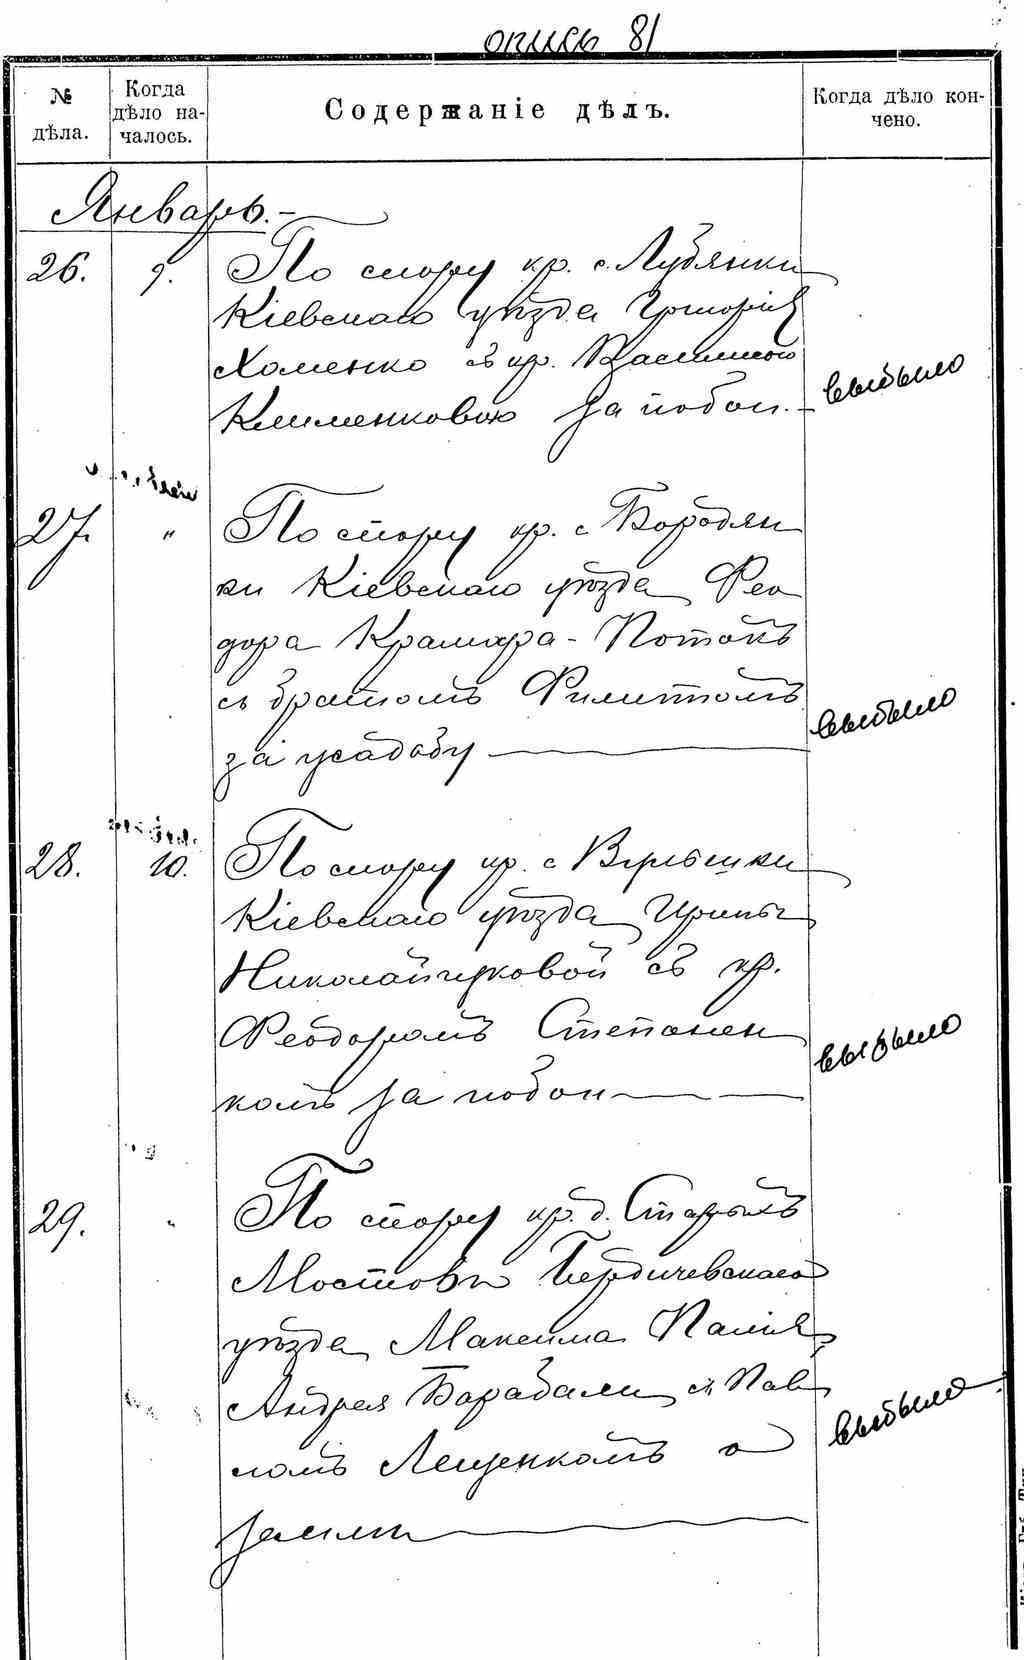 опись 81
№ дѣла.
Когда дѣло началось.
Содержаніе дѣлъ.
Когда дѣло кончено.
Январь.-
26. 9. По спору кр. с. Лубянки
Кіевскаго уѣзда Григорія
Хоменко съ кр. Василиною
Клименковою за побои.- выбыло
27. " По спору кр. с Бородян
ки Кіевскаго уѣзда Фео
дора Крамара-Потапъ
съ братомъ Филиппомъ
за усадьбу выбыло
28. 10. По спору кр. с
Кіевскаго уѣзда Ирины
Николайчуковой съ кр.
Феодоромъ Степанен
комъ за побои выбыло
29. " По спору кр. д. Старыхъ
Мостовъ Бердичевскаго
уѣзда Максима Палія
Андрея Барабали съ Пав
ломъ Лещенкомъ о
землѣ выбыло